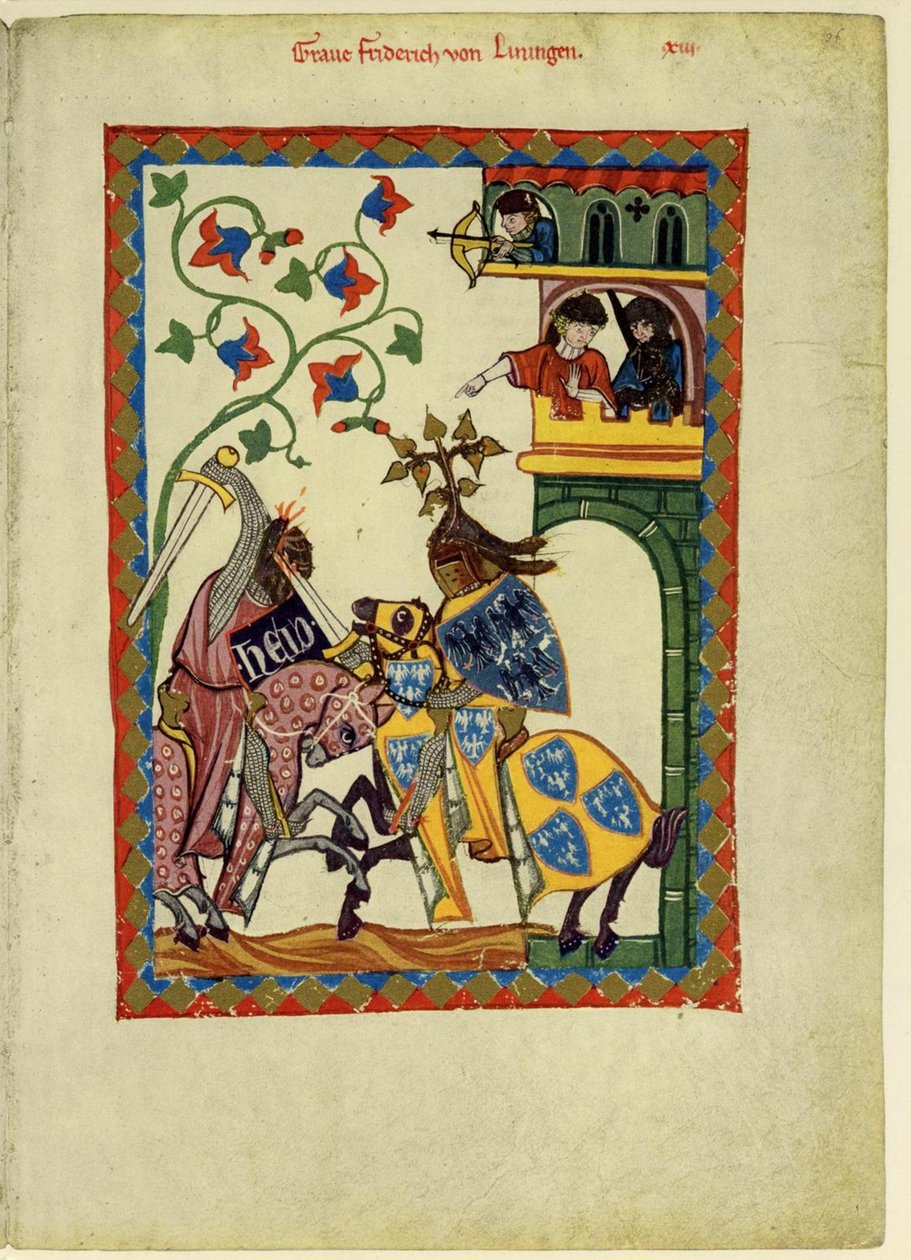 Graue friderich von Liningen. xiii.